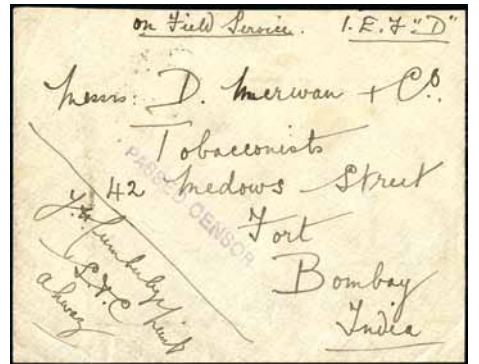 on Field Service. I.E.F "D"
Messrs: D. Merwan + Co.
Tobacconists
42 Medows Street
Fort
Bombay
India
PASSED CENSOR
Lieut
Ahwaz